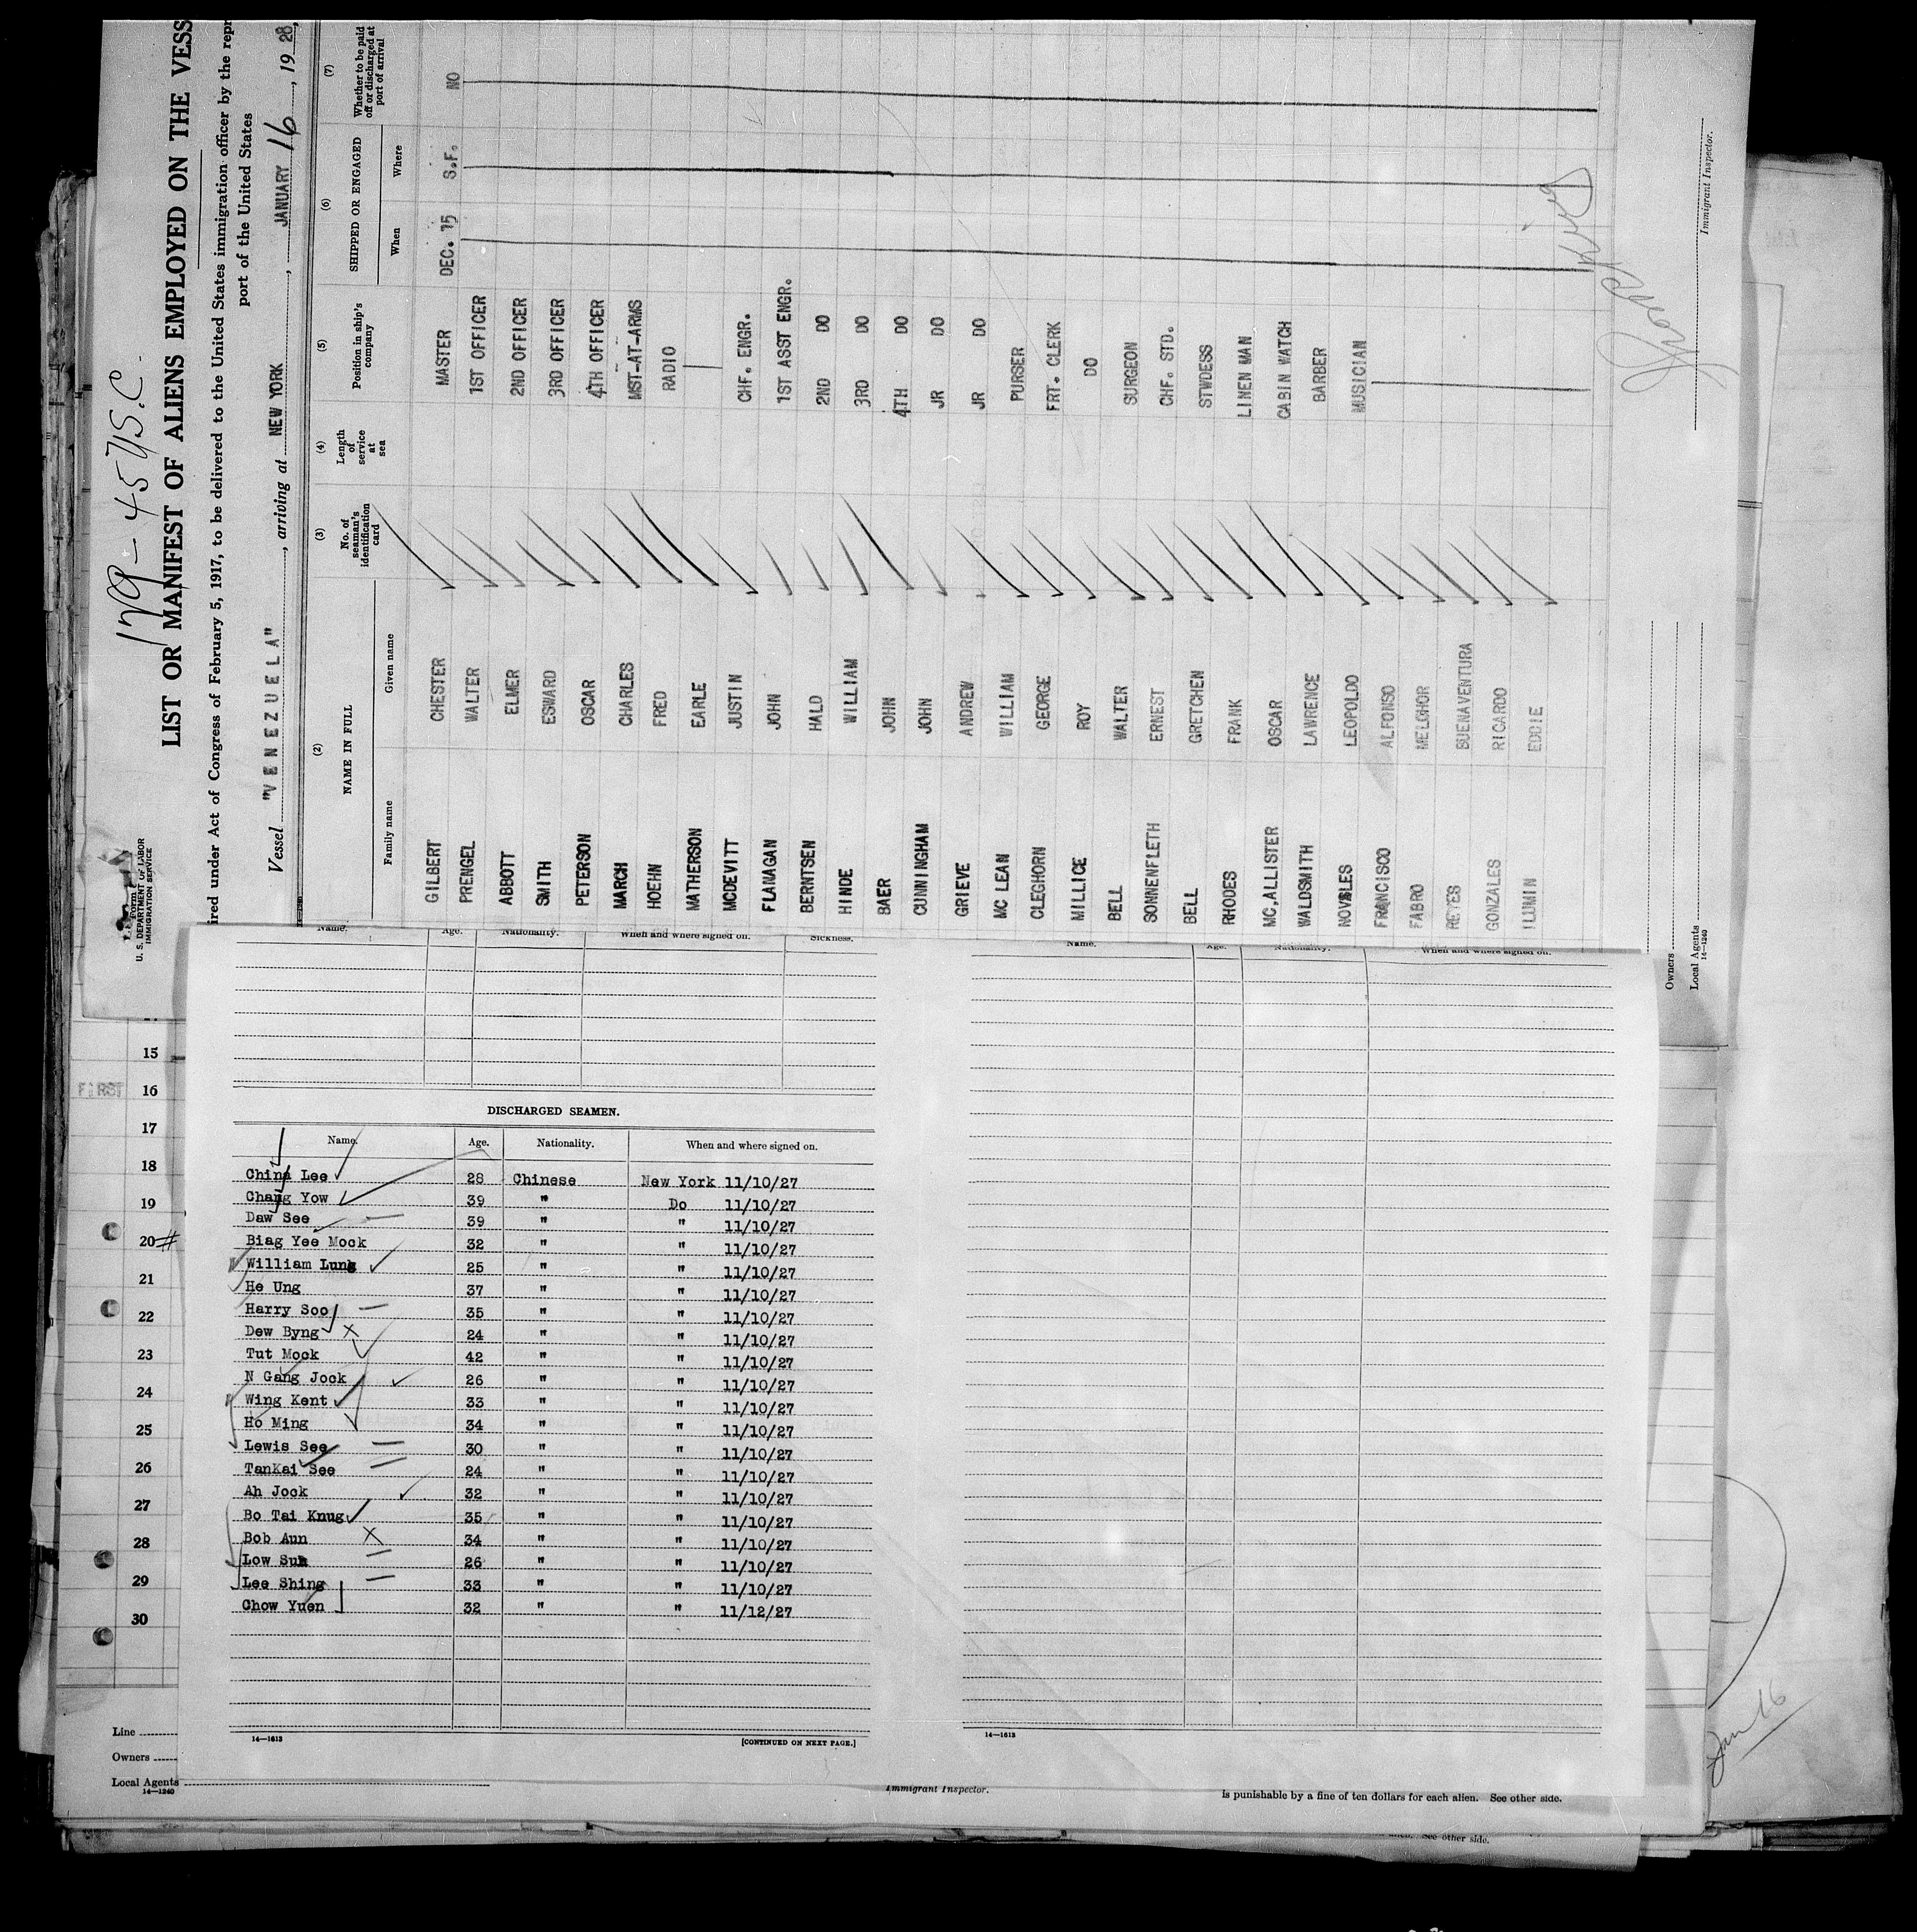 179-45 U.S.C.
Form
U. S. DEPARTMENT OF LABOR
IMMIGRATION SERVICE
LIST OR MANIFEST OF ALIENS EMPLOYED ON THE VESS
ired under Act of Congress of February 5, 1917, to be delivered to the United States immigration officer by the repr
port of the United States
Vessel "VENEZUELA", arriving at NEW YORK, JANUARY 16, 1928,
(2) (3) (4) (5) (6) (7)
NAME IN FULL No. of seaman's identification card Length of service at sea Position in ship's company SHIPPED OR ENGAGED Whether to be paid off or discharged at port of arrival
Family name Given name When Where
GILBERT CHESTER MASTER DEC. 15 S.F. NO
PRENGEL WALTER 1ST OFFICER
ABBOTT ELMER 2ND OFFICER
SMITH ESWARD 3RD OFFICER
PETERSON OSCAR 4TH OFFICER
MARCH CHARLES MST-AT-ARMS
HOEHN FRED RADIO
MATHERSON EARLE
MCDEVITT JUSTIN CHF. ENGR.
FLANAGAN JOHN 1ST ASST ENGR.
BERNTSEN HALD 2ND DO
HINDE WILLIAM 3RD DO
BAER JOHN 4TH DO
CUNNINGHAM JOHN JR DO
GRIEVE ANDREW JR DO
MC LEAN WILLIAM PURSER
CLEGHORN GEORGE FRT. CLERK
MILLICE ROY DO
BELL WALTER SURGEON
SONNENFLETH ERNEST CHF. STD.
BELL GRETCHEN STWDESS
RHOES FRANK LINEN MAN
MC,ALLISTER OSCAR CABIN WATCH
WALDSMITH LAWRENCE BARBER
NOVALES LEOPOLDO MUSICIAN
FRANCISCO ALFONSO
FABRO MELCHOR
REYES BUENAVENTURA
GONZALES RICARDO
ILUMIN EDDIE
Owners
Local Agents
14—1240
Immigrant Inspector.
Name. Age. Nationality. When and where signed on. Sickness.
Name. Age. Nationality. When and where signed on.
DISCHARGED SEAMEN.
Name. Age. Nationality. When and where signed on.
China Lee 28 Chinese New York 11/10/27
Chang Yow 39 " Do 11/10/27
Daw See 39 " " 11/10/27
Biag Yee Mock 32 " " 11/10/27
William Lung 25 " " 11/10/27
He Ung 37 " " 11/10/27
Harry Soo 35 " " 11/10/27
Dew Byng 24 " " 11/10/27
Tut Mock 42 " " 11/10/27
N Gang Jock 26 " " 11/10/27
Wing Kent 33 " " 11/10/27
Ho Ming 34 " " 11/10/27
Lewis See 30 " " 11/10/27
TanKai See 24 " " 11/10/27
Ah Jock 32 " " 11/10/27
Bo Tai Knug 35 " " 11/10/27
Bob Aun 34 " " 11/10/27
Low Sun 26 " " 11/10/27
Lee Shing 33 " " 11/10/27
Chow Yuen 32 " " 11/12/27
14—1613
[CONTINUED ON NEXT PAGE.]
14—1613
15
FIRST 16
17
18
19
20 #
21
22
23
24
25
26
27
28
29
30
Line
Owners
Local Agents
14—1240
Immigrant Inspector.
is punishable by a fine of ten dollars for each alien. See other side.
See other side.
Jan 16